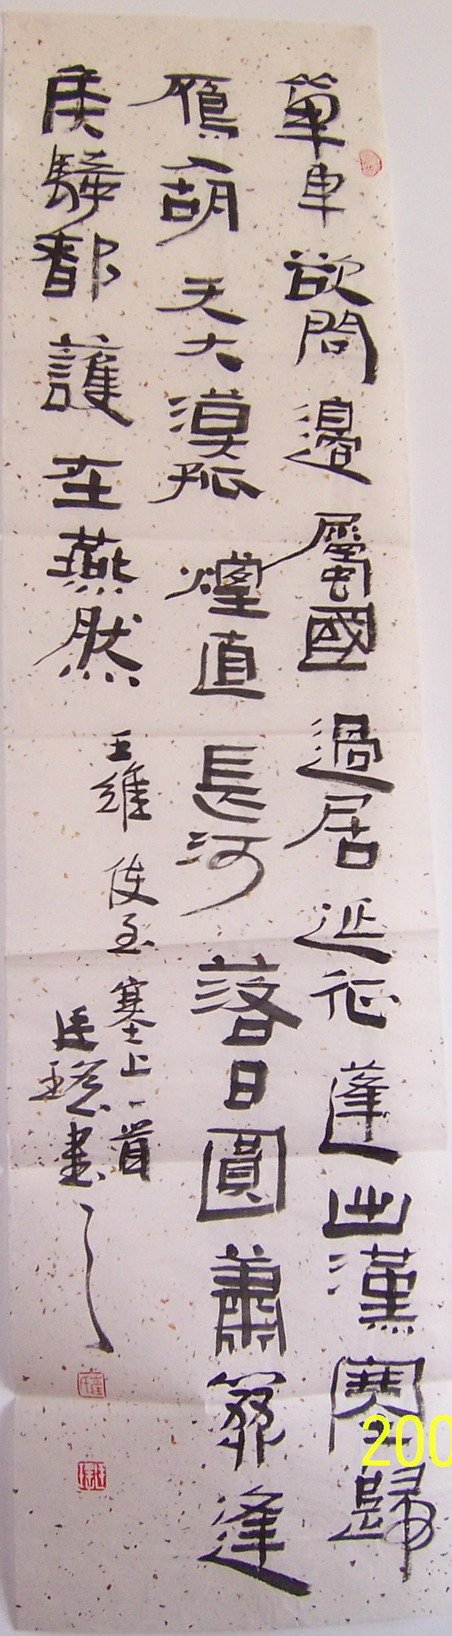 單車欲問邊屬國過居延征蓬出漢塞歸
鴈入胡天大漠孤煙直長河落日圓蕭關逢
侯騎都護在燕然
王維使至塞上一首
書
200